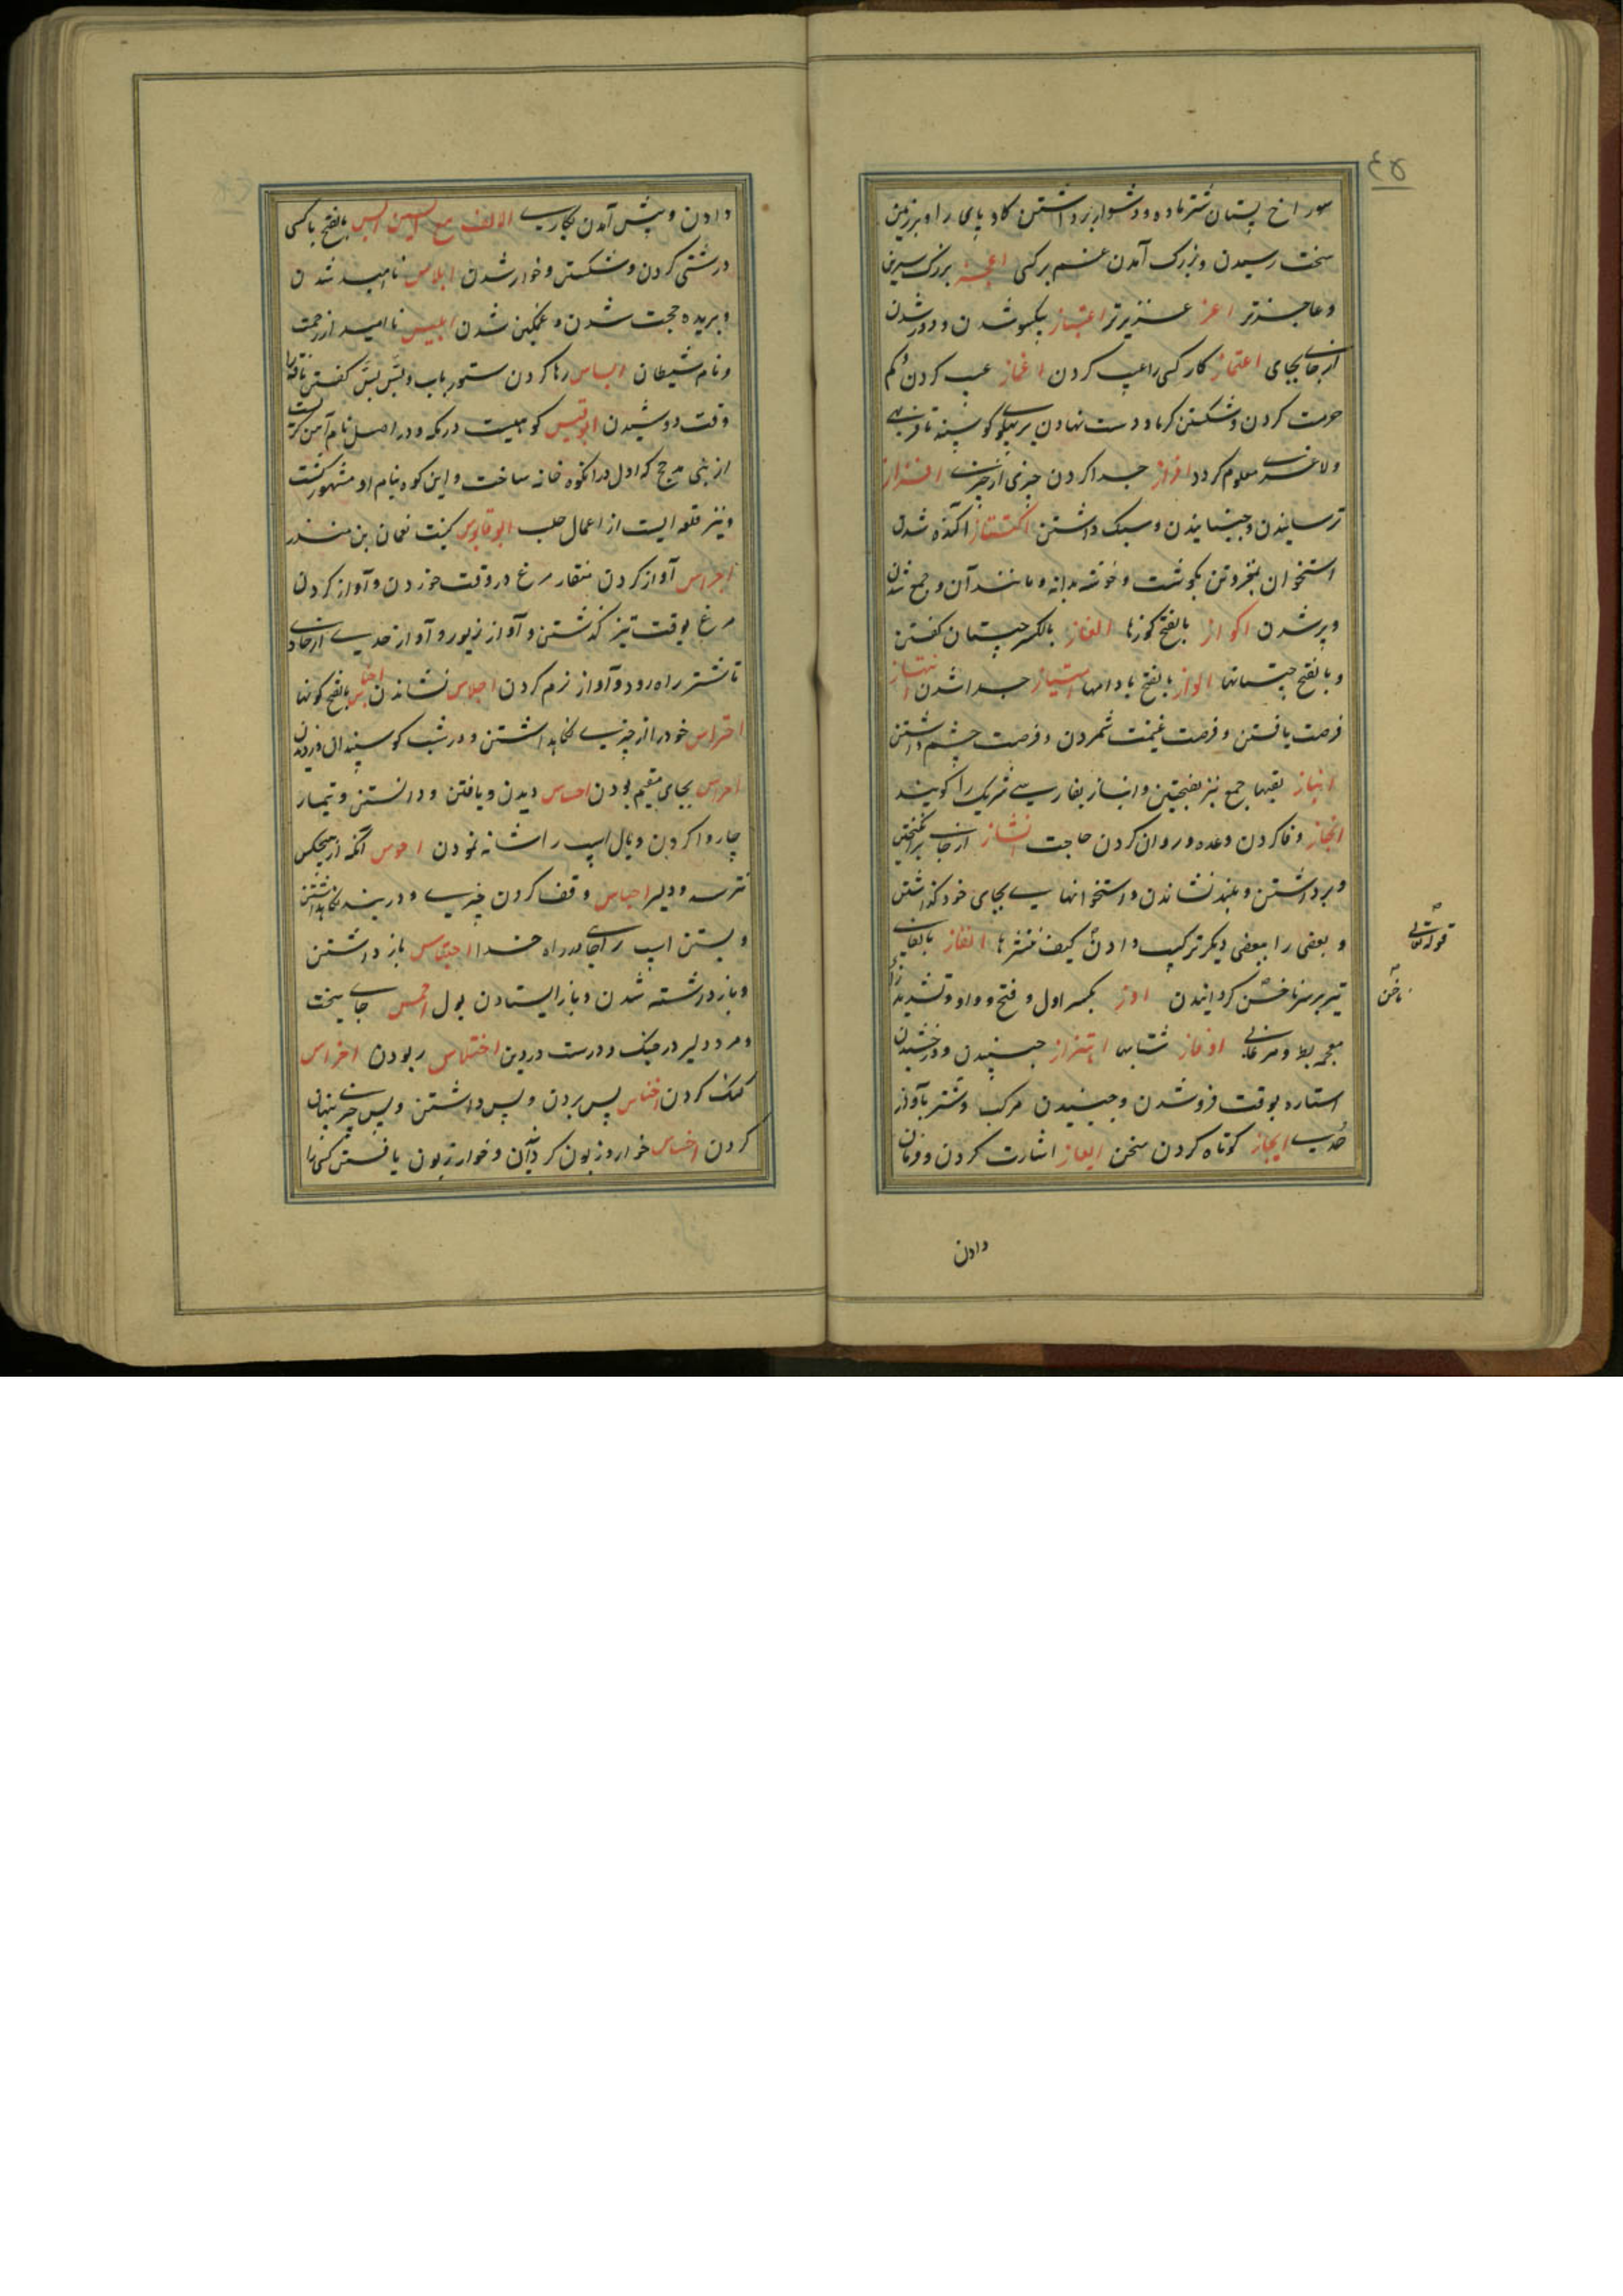 ٤٥
سوراخ پستان شتر ماده و دشوار برداشتن کاو پایها را و بر زمین
سخت رسیدن و بزرک آمدن غم بر کسی اعجز بزرک سرین
و عاجزتر اعز عزیزتر اعتزاز یکسو شدن و دور شدن
از جای بجای اعتماز کار کسی را عیب کردن اغماز عیب کردن و کم
حرمت کردن و شکستن کرما و دست نهادن بر پهلوی کوسپند تا فربهی
و لاغری معلوم کردد افراز جدا کردن چیزی از چیزی افزاز
ترسانیدن و جنبانیدن و سبک داشتن اکتناز آکنده شدن
استخوان بمغز و تن بکوشت و خوشه بدانه و مانند آن و جمع شدن
و پر شدن اکواز بالفتح کوزها الغاز بالکسر چیستان کفتن
و بالفتح چیستانها الواز بالفتح بادامها امتیاز جدا شدن انتهاز
فرصت یافتن و فرصت غنیمت شمردن و فرصت چشم داشتن
انباز لقبها جمع نبز بفتحتین و انباز بفارسی شریک را کویند
انجاز وفا کردن وعده و روان کردن حاجت انشاز از جای برانکیختن
و برداشتن و بلند نشاندن و استخوانهای بجای خود کذاشتن
و بعضی را ببعضی دیکر ترکیب دادن کیف ننشزها انفاز بالفا
تیر بر سر ناخن کردانیدن اوز بکسر اول و فتح واو و تشدید زا
معجمه بط و مرغابی اوفاز شتابها اهتزاز جنبیدن و درخشیدن
ستاره بوقت فرو شدن و جنبیدن مرکب و شتر بآواز
حدی ایجاز کوتاه کردن سخن ایعاز اشارت کردن و فرمان
قوله تعالی
ناخن
دادن
دادن و پیش آمدن بکاری الالف مع السین ابس بالفتح با کسی
درشتی کردن و شکستن و خوار شدن ابلاس ناامید شدن
و بریده حجت شدن و غمکین شدن ابلیس ناامید از رحمت
و نام شیطان ابساس رها کردن ستور بآب و بس بس کفتن ناقه را
وقت دوشیدن ابوقبیس کوهیست در مکه و در اصل نام آهنکریست
از بنی مذحج که اول در آنکوه خانه ساخت و این کوه بنام او مشهور کشت
و نیز قلعه ایست از اعمال حلب ابوقابوس کنیت نعمان بن منذر
اجراس آواز کردن منقار مرغ در وقت خوردن و آواز کردن
مرغ بوقت تیز کذشتن و آواز زیور و آواز حدی از حادی
تا شتر راه رود و آواز نرم کردن اجلاس نشاندن اجناس بالفتح کونها
احتراس خود را از چیزی نکاهداشتن و در شب کوسپندان دزدیدن
احراس بجای مقیم بودن احساس دیدن و یافتن و دانستن و تیمار
چاروا کردن و یال اسپ را شانه نمودن احوس آنکه از هیچکس
نترسد و دلیر احباس وقف کردن چیزی و در بند نکاهداشتن
و بستن اسپ را بجای در راه خدا احتباس باز داشتن
و باز داشته شدن و باز ایستادن بول احمس جای سخت
و مرد دلیر در جنک و درست در دین اختلاس ربودن اخراس
کنک کردن اخناس پس بردن و پس داشتن و پس چیزی پنهان
کردن اخساس خوار و زبون کردن و خوار و زبون یافتن کسی را